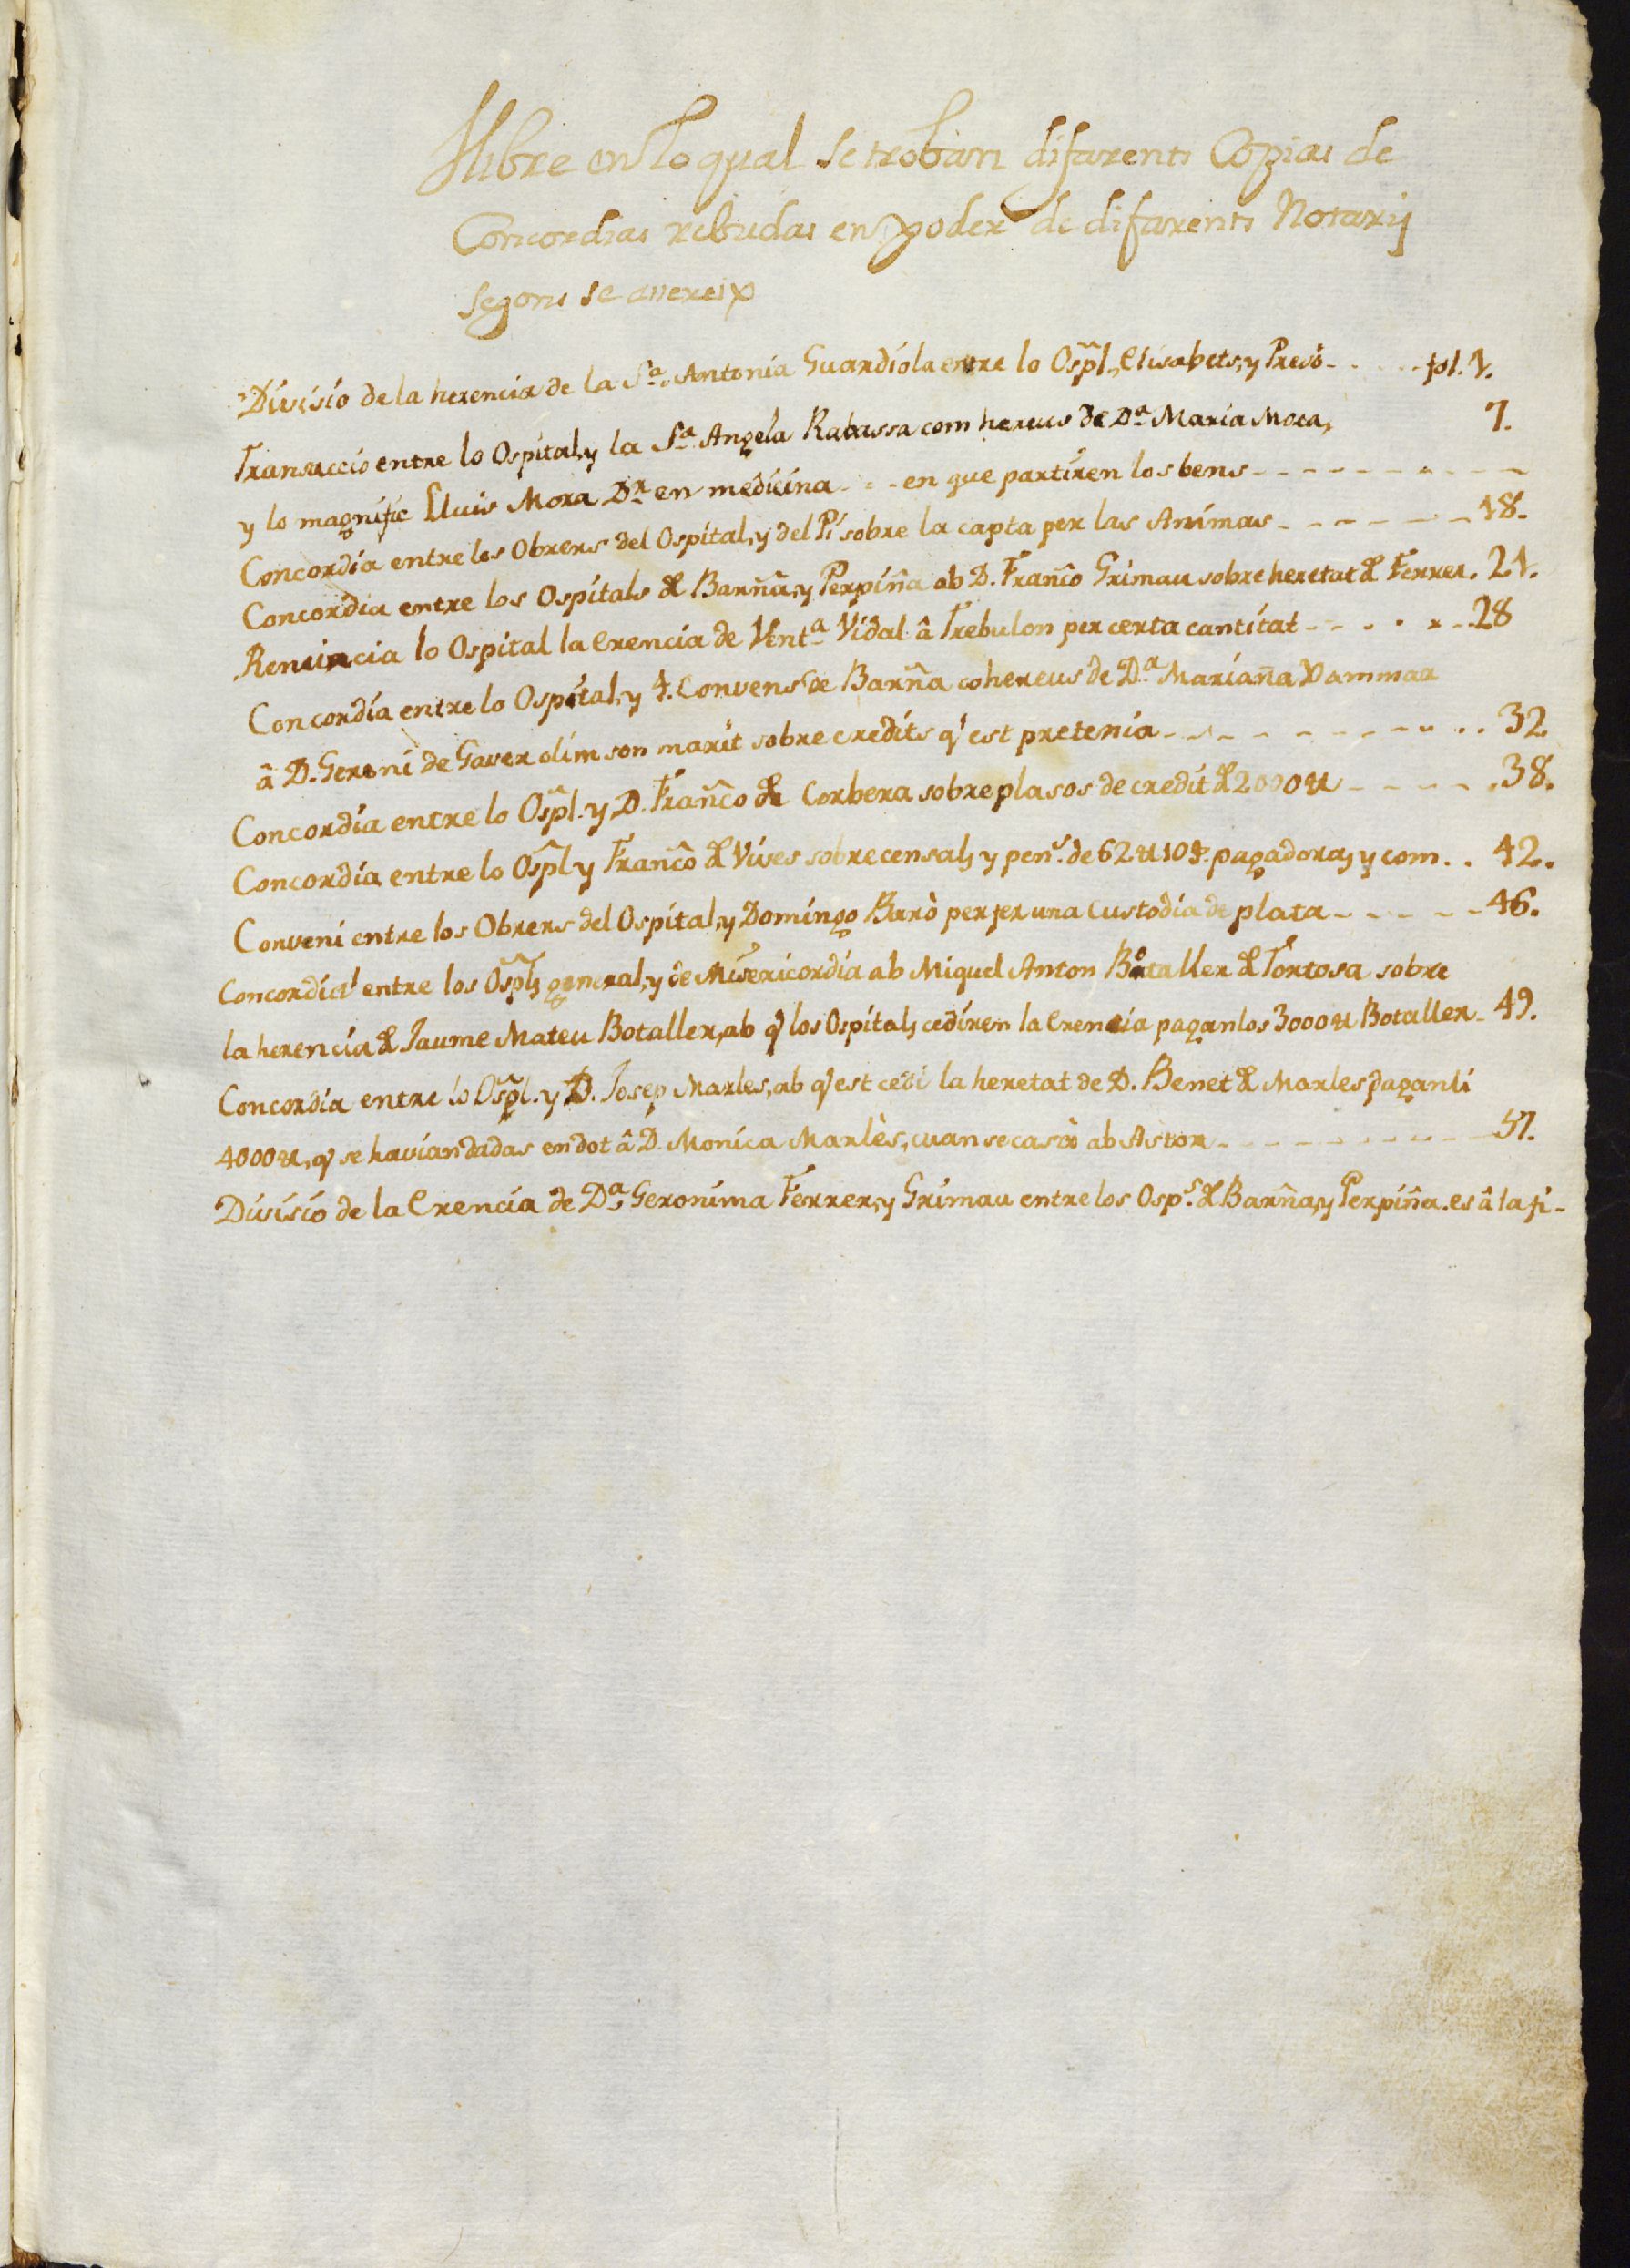 Llibre en lo qual se troban difarents Copias de
Concordias rebudas en poder de difarents Notarij
segons se assereix
Divisio de la herencia de la Sª. Antonia Guardiola entre lo Ospl., Elisabets, y Presó - - - - - fol. 1.
Transaccio entre lo Ospital, y la Sª. Angela Rabassa com hereus de Dª. Maria Mora, 7.
y lo magnific Lluis Mora Dr. en medicina - - - en que partiren los bens - - - - - - - - -
Concordia entre los Obrers del Ospital, y del Pi sobre la capta per las Animas - - - - - - - 18.
Concordia entre los Ospitals de Barña, y Perpiña ab D. Franco Grimau sobre heretat de Ferrer. 21.
Renuncia lo Ospital la erencia de Ventª. Vidal â Trebulon per certa cantitat - - - - - - 28
Concordia entre lo Ospital, y 4. Convens de Barña cohereus de Dª. Mariaña
â D. Geroni de Gaver olim son marit sobre credits q' est pretenia - - - - - - - - - - 32
Concordia entre lo Ospl. y D. Franco de Corbera sobre plasos de credit de 2000 ll - - - - - 38.
Concordia entre lo Ospl y Franco de Vives sobre censals y pens. de 62 ll 10 s. pagadoras y com . . 42.
Conveni entre los Obrers del Ospital, y Domingo Barò per fer una Custodia de plata - - - - - 46.
Concordia entre los Ospls general, y de Misericordia ab Miquel Anton Botaller de Tortosa sobre
la herencia de Jaume Mateu Botaller, ab q' los Ospitals cediren la erencia paganlos 3000 ll Botaller - 49.
Concordia entre lo Ospl. y D. Josep Marles, ab q' est cedi la heretat de D. Benet de Marles paganli
4000 ll, q' se havian dadas en dot â D. Monica Marlès, cuan se casà ab Astor - - - - - - - - - 57.
Divisio de la Erencia de Dª. Geronima Ferrer, y Grimau entre los Osps. de Barña, y Perpiña. es â la fi -